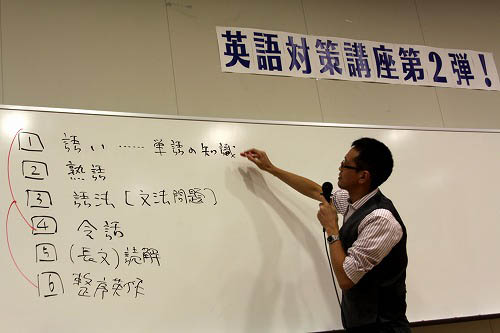 英語対策講座第2弾!
1 語い……単語の知識
2 熟語
3 語法[文法問題]
4 会話
5 (長文)読解
6 整序英作